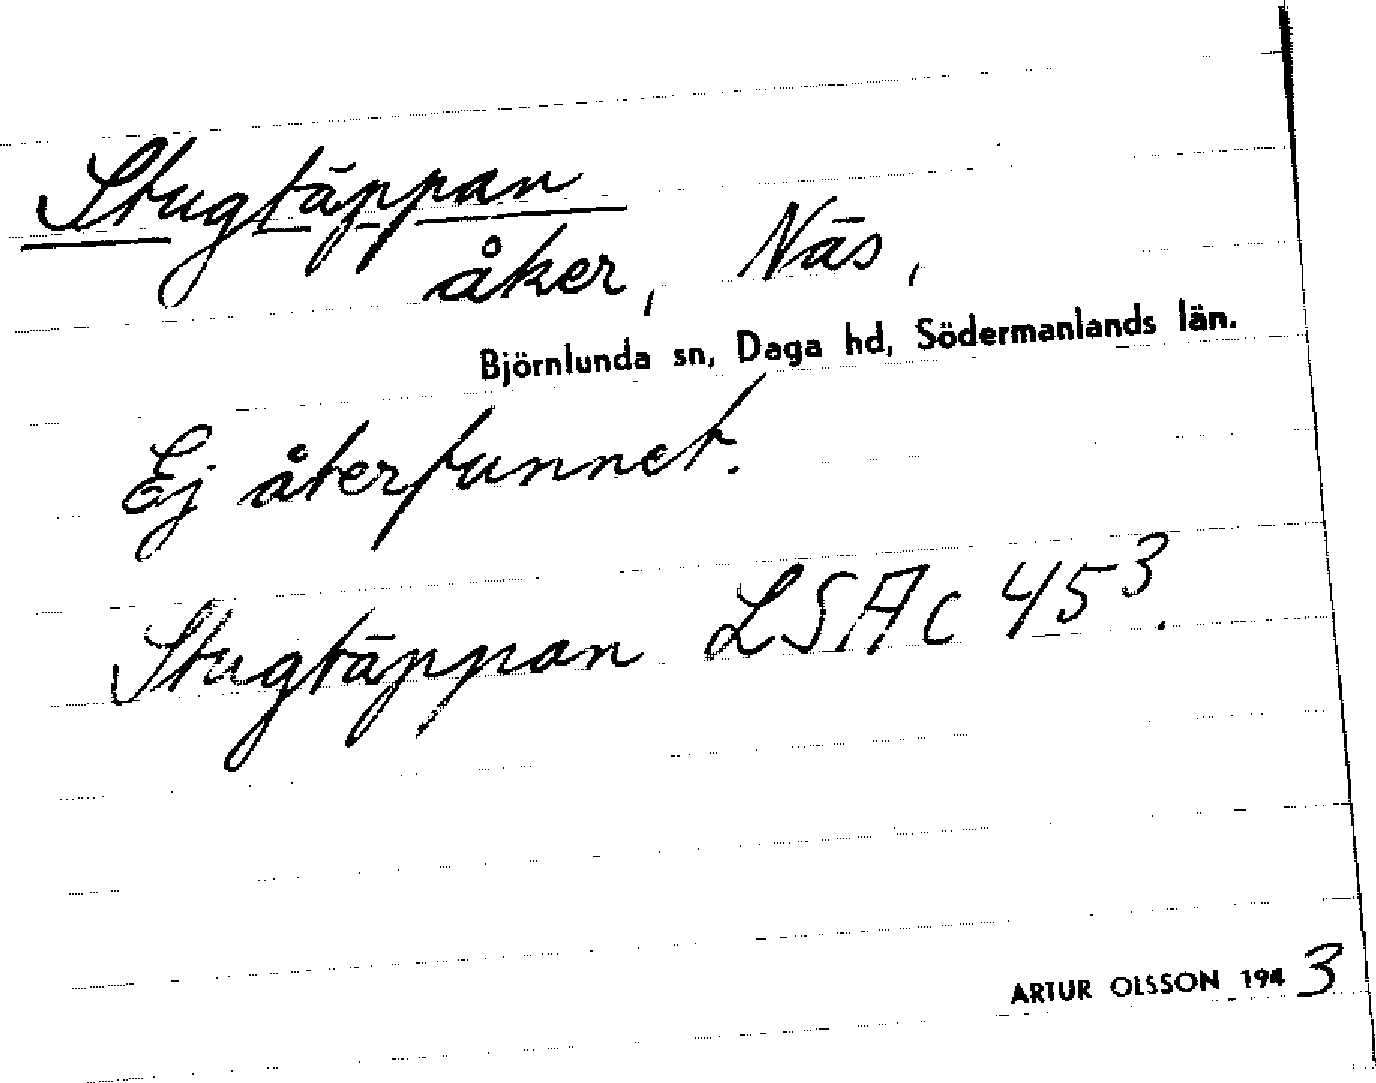 Stugtäppan
åker, Näs,
Björnlunda sn, Daga hd, Södermanlands län.
Ej återfunnet.
Stugtäppan LSAc 45³.
ARTUR OLSSON 1943